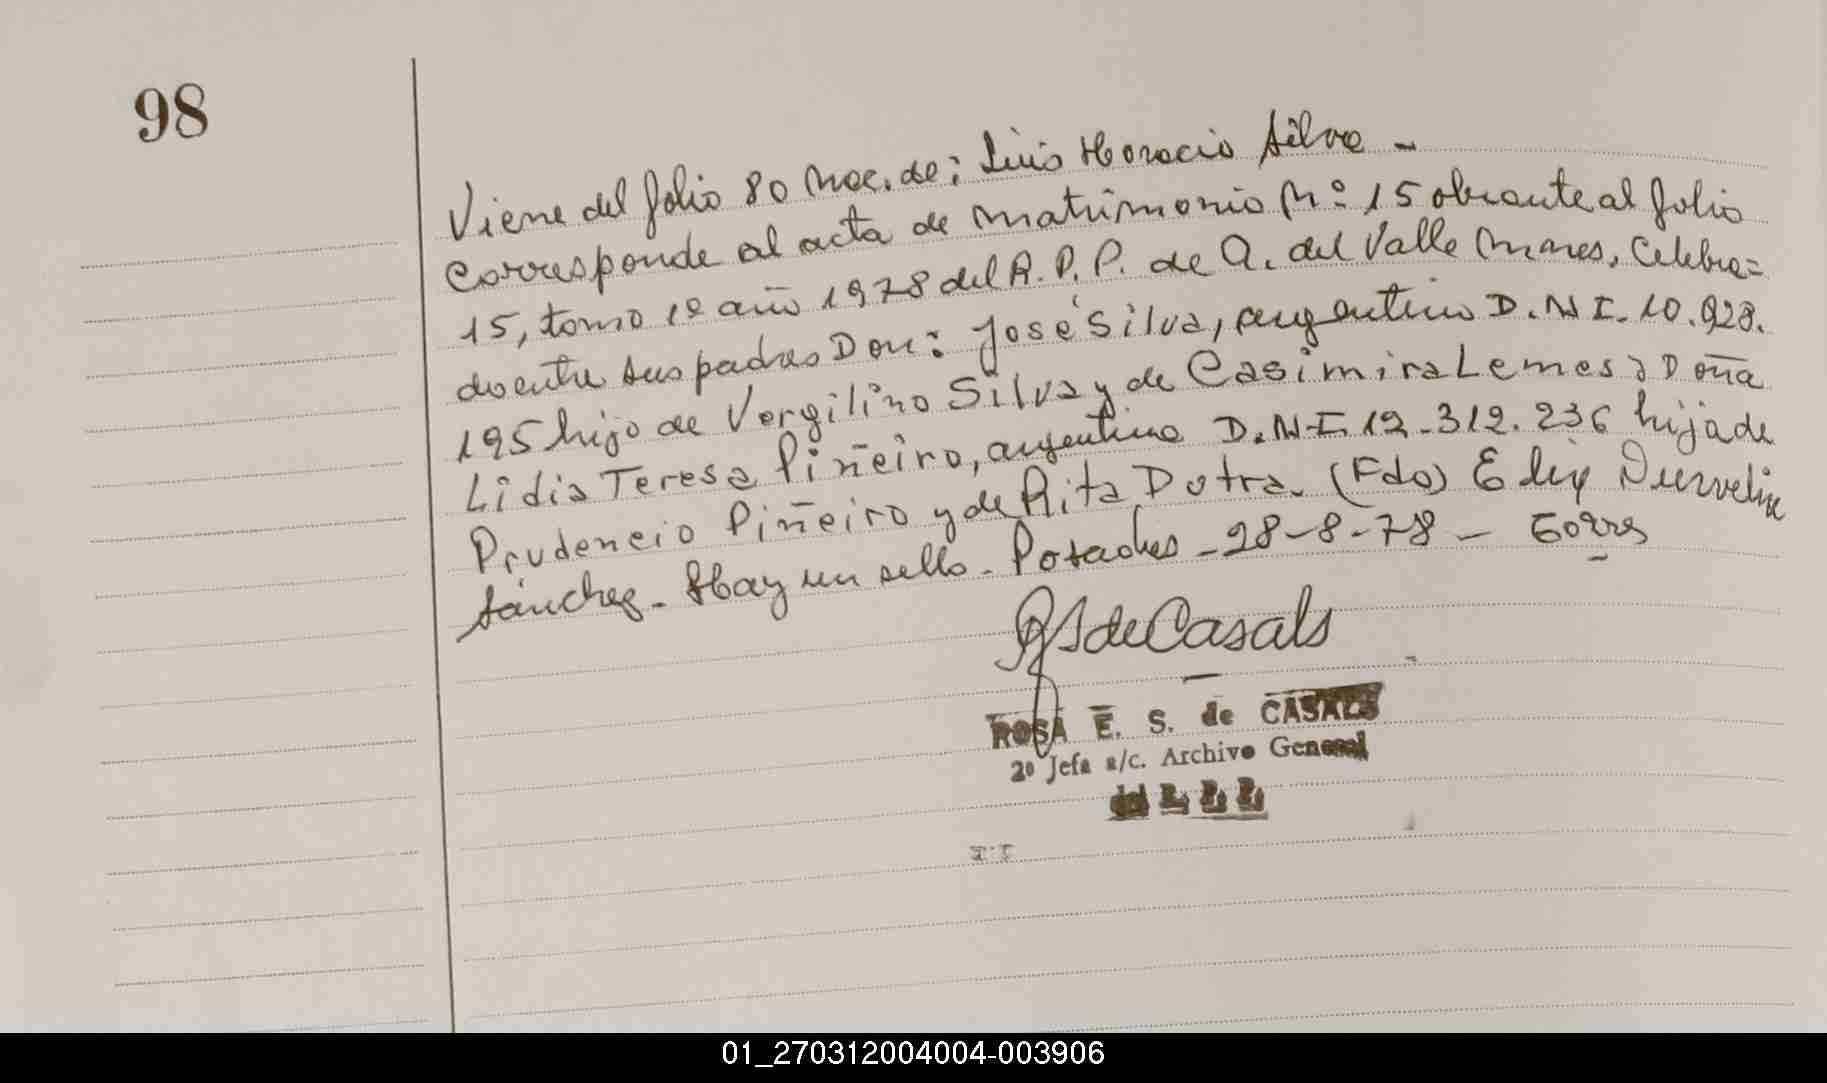 98
Viene del folio 80 Nac. de: Luis Horacio Silva -
Corresponde al acta de matrimonio Nº 15 obrante al folio
15, tomo 1º año 1978 del R.P.P. de A. del Valle Mnes. Celebra=
do entre sus padres Don: José Silva, argentino D.N I. 10.928.
195 hijo de Vergilino Silva y de Casimira Lemes y Doña
Lidia Teresa Piñeiro, argentina D.N.I 12.312.236 hija de
Prudencio Piñeiro y de Rita Dutra. (Fdo)
Sánchez - Hay un sello - Posadas - 28-8-78 -
RS de Casals
ROSA E. S. de CASALS
2º Jefa a/c. Archivo General
del R. P. P.
01_270312004004-003906